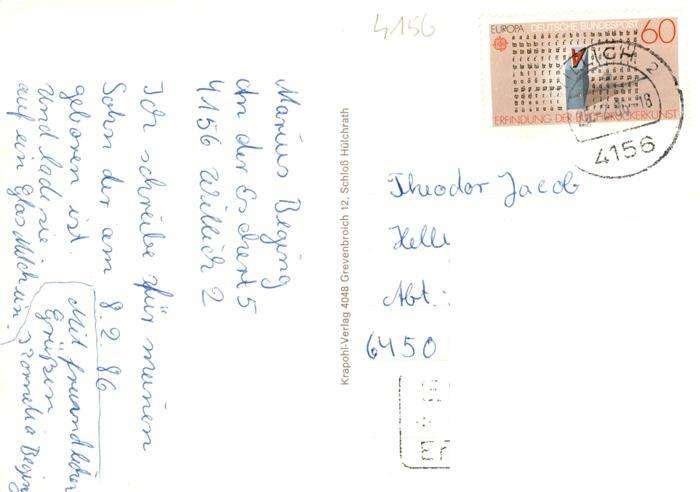 4156
EUROPA DEUTSCHE BUNDESPOST 60
ERFINDUNG DER BUCHDRUCKERKUNST
2
4156
Marius Beging
An der Eschert 5
4156 Willich 2
Ich schreibe für meinen
Sohn der am 8.2.86
geboren ist.
und lade sie
auf ein Glas Milch ein.
Mit freundlichen
Grüßen
Cornelia Beging
Krapohl-Verlag 4048 Grevenbroich 12, Schloß Hülchrath
Theodor Jacob
Abt.:
6450